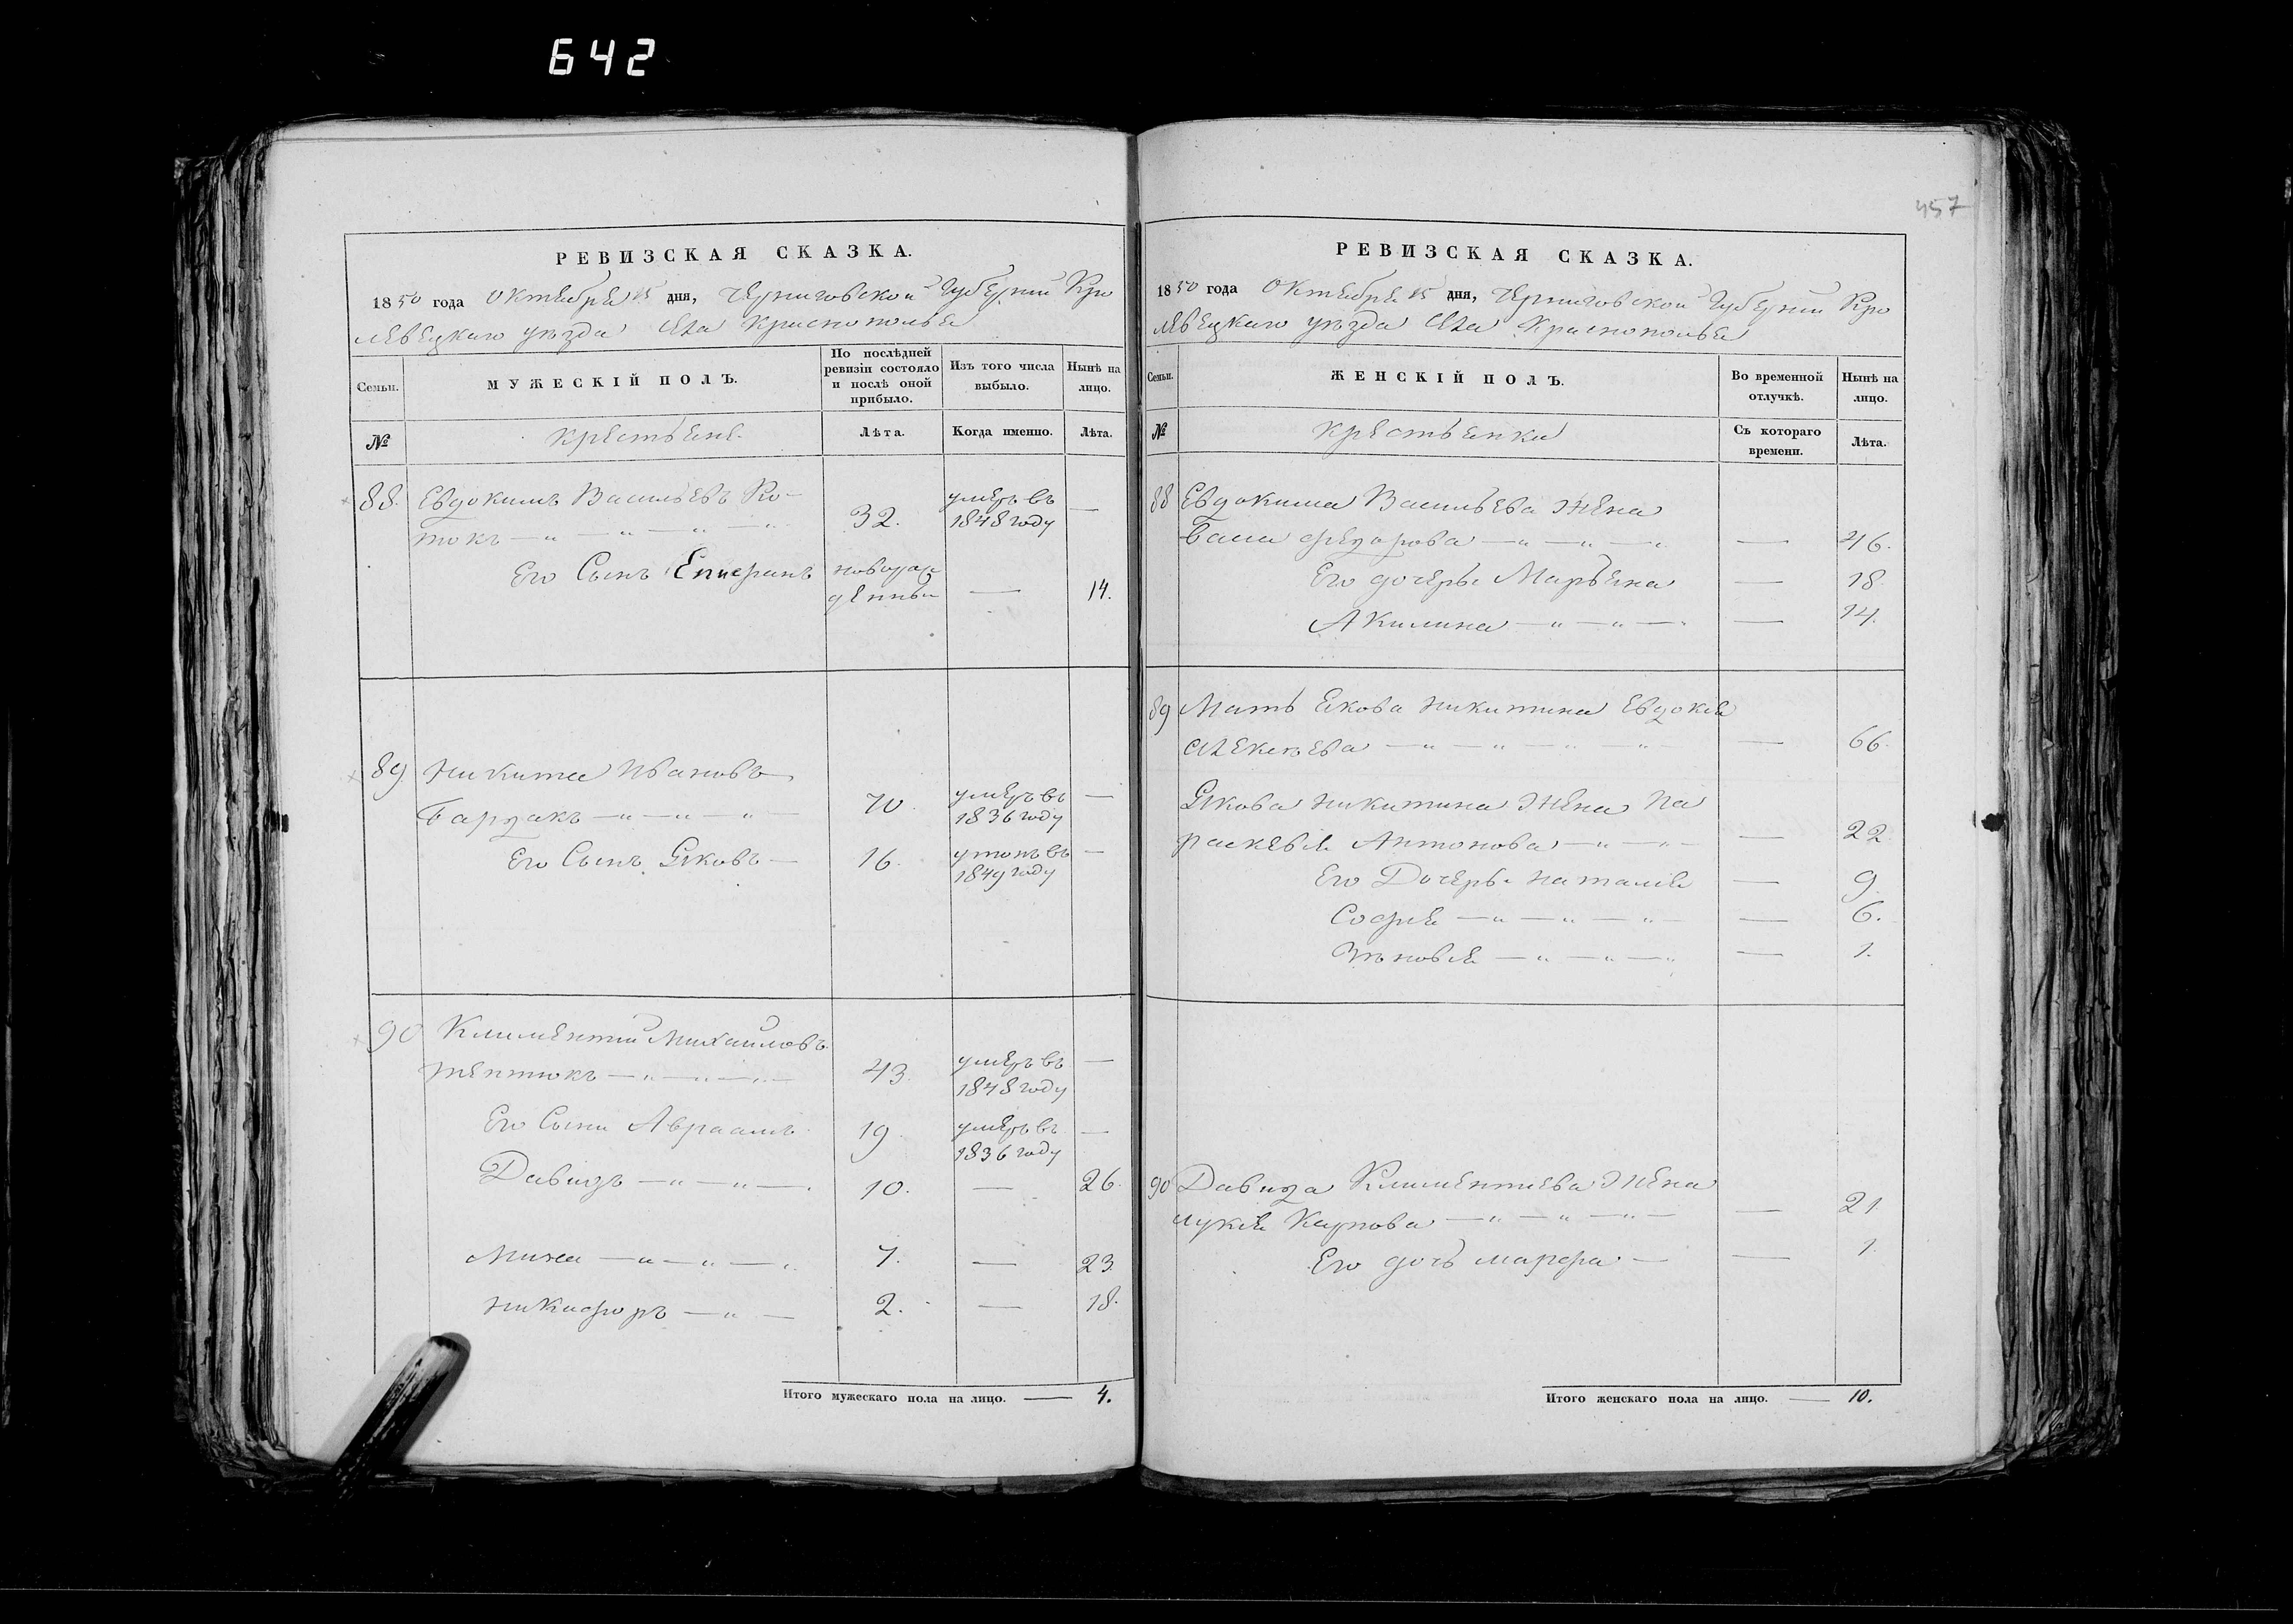 642
457
РЕВИЗСКАЯ СКАЗКА.
1850 года Октября 15 дня, Черниговской Губерніи Кро
левецкаго уезда села Краснополья
Семьи.
МУЖЕСКІЙ ПОЛЪ.
По послѣдней ревизіи состояло и послѣ оной прибыло.
Изъ того числа выбыло.
Нынѣ на лицо.
№
Крестьяне.
Лѣта.
Когда именно.
Лѣта.
88. Евдокимъ Васильевъ Ко-
токъ — „ — „ — „ 32. умеръ въ 1848 году —
Его Сынъ Епифанъ новорожденный — 14.
89. Никита Ивановъ
Бардакъ — „ — „ — „ — 70. умеръ въ 1836 году —
Его Сынъ Яковъ — 16. утопъ въ 1849 году —
90 Климентій Михайловъ
— „ — „ — „ — 43. умеръ въ 1848 году —
Его Сыни Авраамъ 19. умеръ въ 1836 году —
Давидъ — „ — „ — 10. — 26.
Миха — „ — „ — „ 7. — 23.
Никифоръ — „ — 2. — 18.
Итого мужескаго пола на лицо. — 4.
РЕВИЗСКАЯ СКАЗКА.
1850 года Октября 15 дня, Черниговской Губерніи Кро
левецкаго уезда села Краснополья
Семьи.
ЖЕНСКІЙ ПОЛЪ.
Во временной отлучкѣ.
Нынѣ на лицо.
№
Крестьянки
Съ котораго времени.
Лѣта.
88 Евдокима Васильева жена
Федорова — „ — „ — „ — 46.
Его дочерь Марьяна — 18.
Акилина — „ — „ — „ — 14.
89 Мать Якова Никитина Евдокія
Алексѣева — „ — „ — „ — „ — 66.
Якова Никитина жена Па
раскевія Антонова — „ — „ — — 22.
Его Дочерь Наталія — 9.
Софія — „ — „ — „ — — 6.
Зѣновія — „ — „ — „ — 1.
90 Давида Климентіева жена
Лукія Карпова — „ — „ — „ — — 21.
Его дочь Марфа — — 1.
Итого женскаго пола на лицо. — 10.